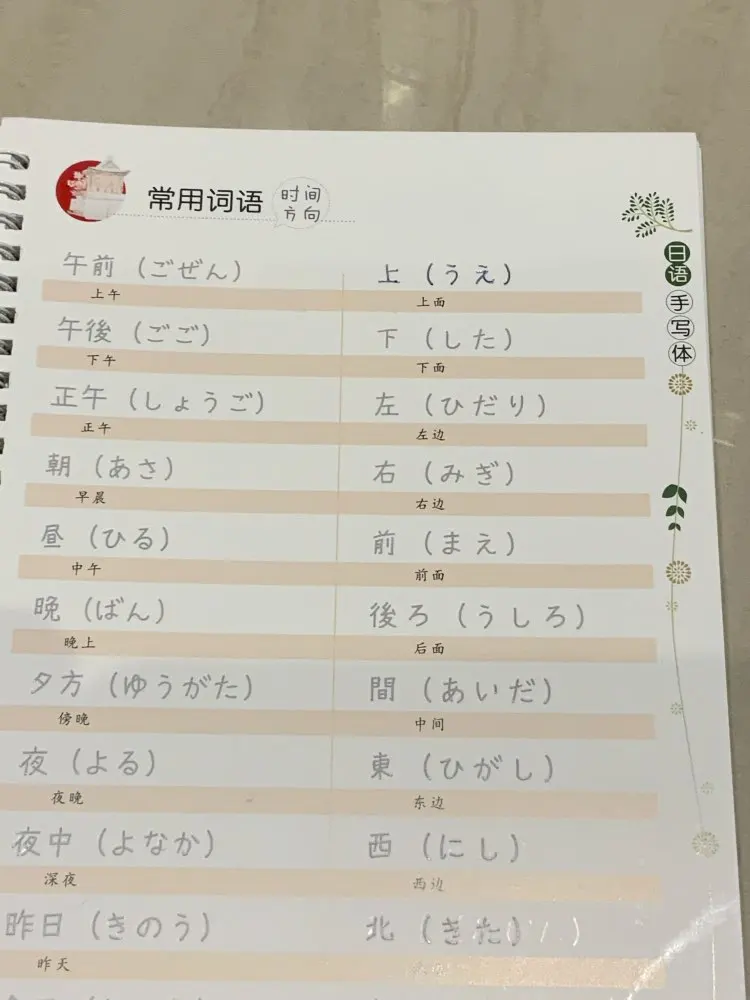 常用词语
时间
方向
午前（ごぜん）
上午
午後（ごご）
下午
正午（しょうご）
正午
朝（あさ）
早晨
昼（ひる）
中午
晩（ばん）
晚上
夕方（ゆうがた）
傍晚
夜（よる）
夜晚
夜中（よなか）
深夜
昨日（きのう）
昨天
上（うえ）
上面
下（した）
下面
左（ひだり）
左边
右（みぎ）
右边
前（まえ）
前面
後ろ（うしろ）
后面
間（あいだ）
中间
東（ひがし）
东边
西（にし）
西边
北（きた）
日语手写体